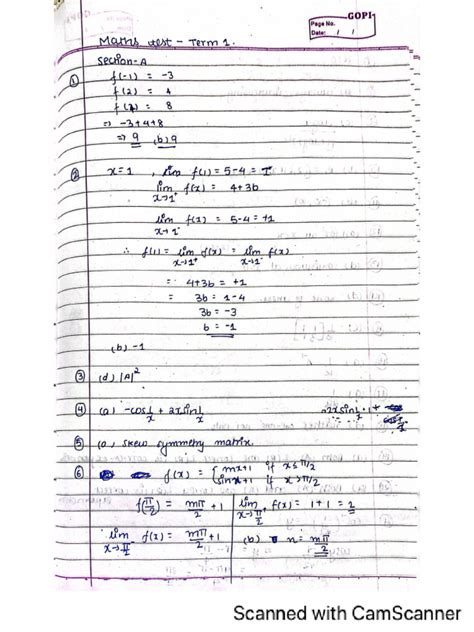 GOPI
Page No.
Date: / /
Maths test - Term 1.
Section-A
① f(-1) = -3
f(2) = 4
f(4) = 8
=> -3+4+8
=> 9 (b) 9
② x=1 , lim f(1) = 5-4 = 1
lim x→1⁺ f(x) = 4+3b
lim x→1⁻ f(x) = 5-4 = +1
∴ f(1) = lim x→1⁺ f(x) = lim x→1⁻ f(x)
= 4+3b = +1
= 3b = 1-4
3b = -3
b = -1
(b) -1
③ (d) |A|²
④ (a) -cos 1/x + 2x sin 1/x 2x sin 1/x . 1 +
⑤ (a) skew symmetry matrix.
⑥ f(x) = { mx+1 if x ≤ π/2
sinx+1 if x > π/2
f(π/2) = mπ/2 + 1 lim x→π/2⁺ f(x) = 1 + 1 = 2
lim x→π/2⁻ f(x) = mπ/2 + 1 (b) n = mπ/2
Scanned with CamScanner